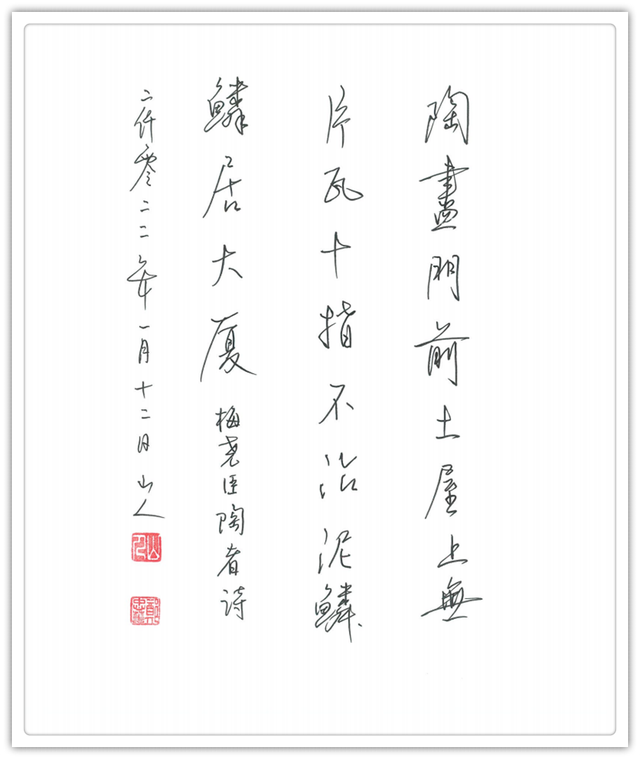 陶盡門前土屋上無
片瓦十指不沾泥鱗
鱗居大厦 梅堯臣陶者詩
二仟零二二年一月十二日山人
山人